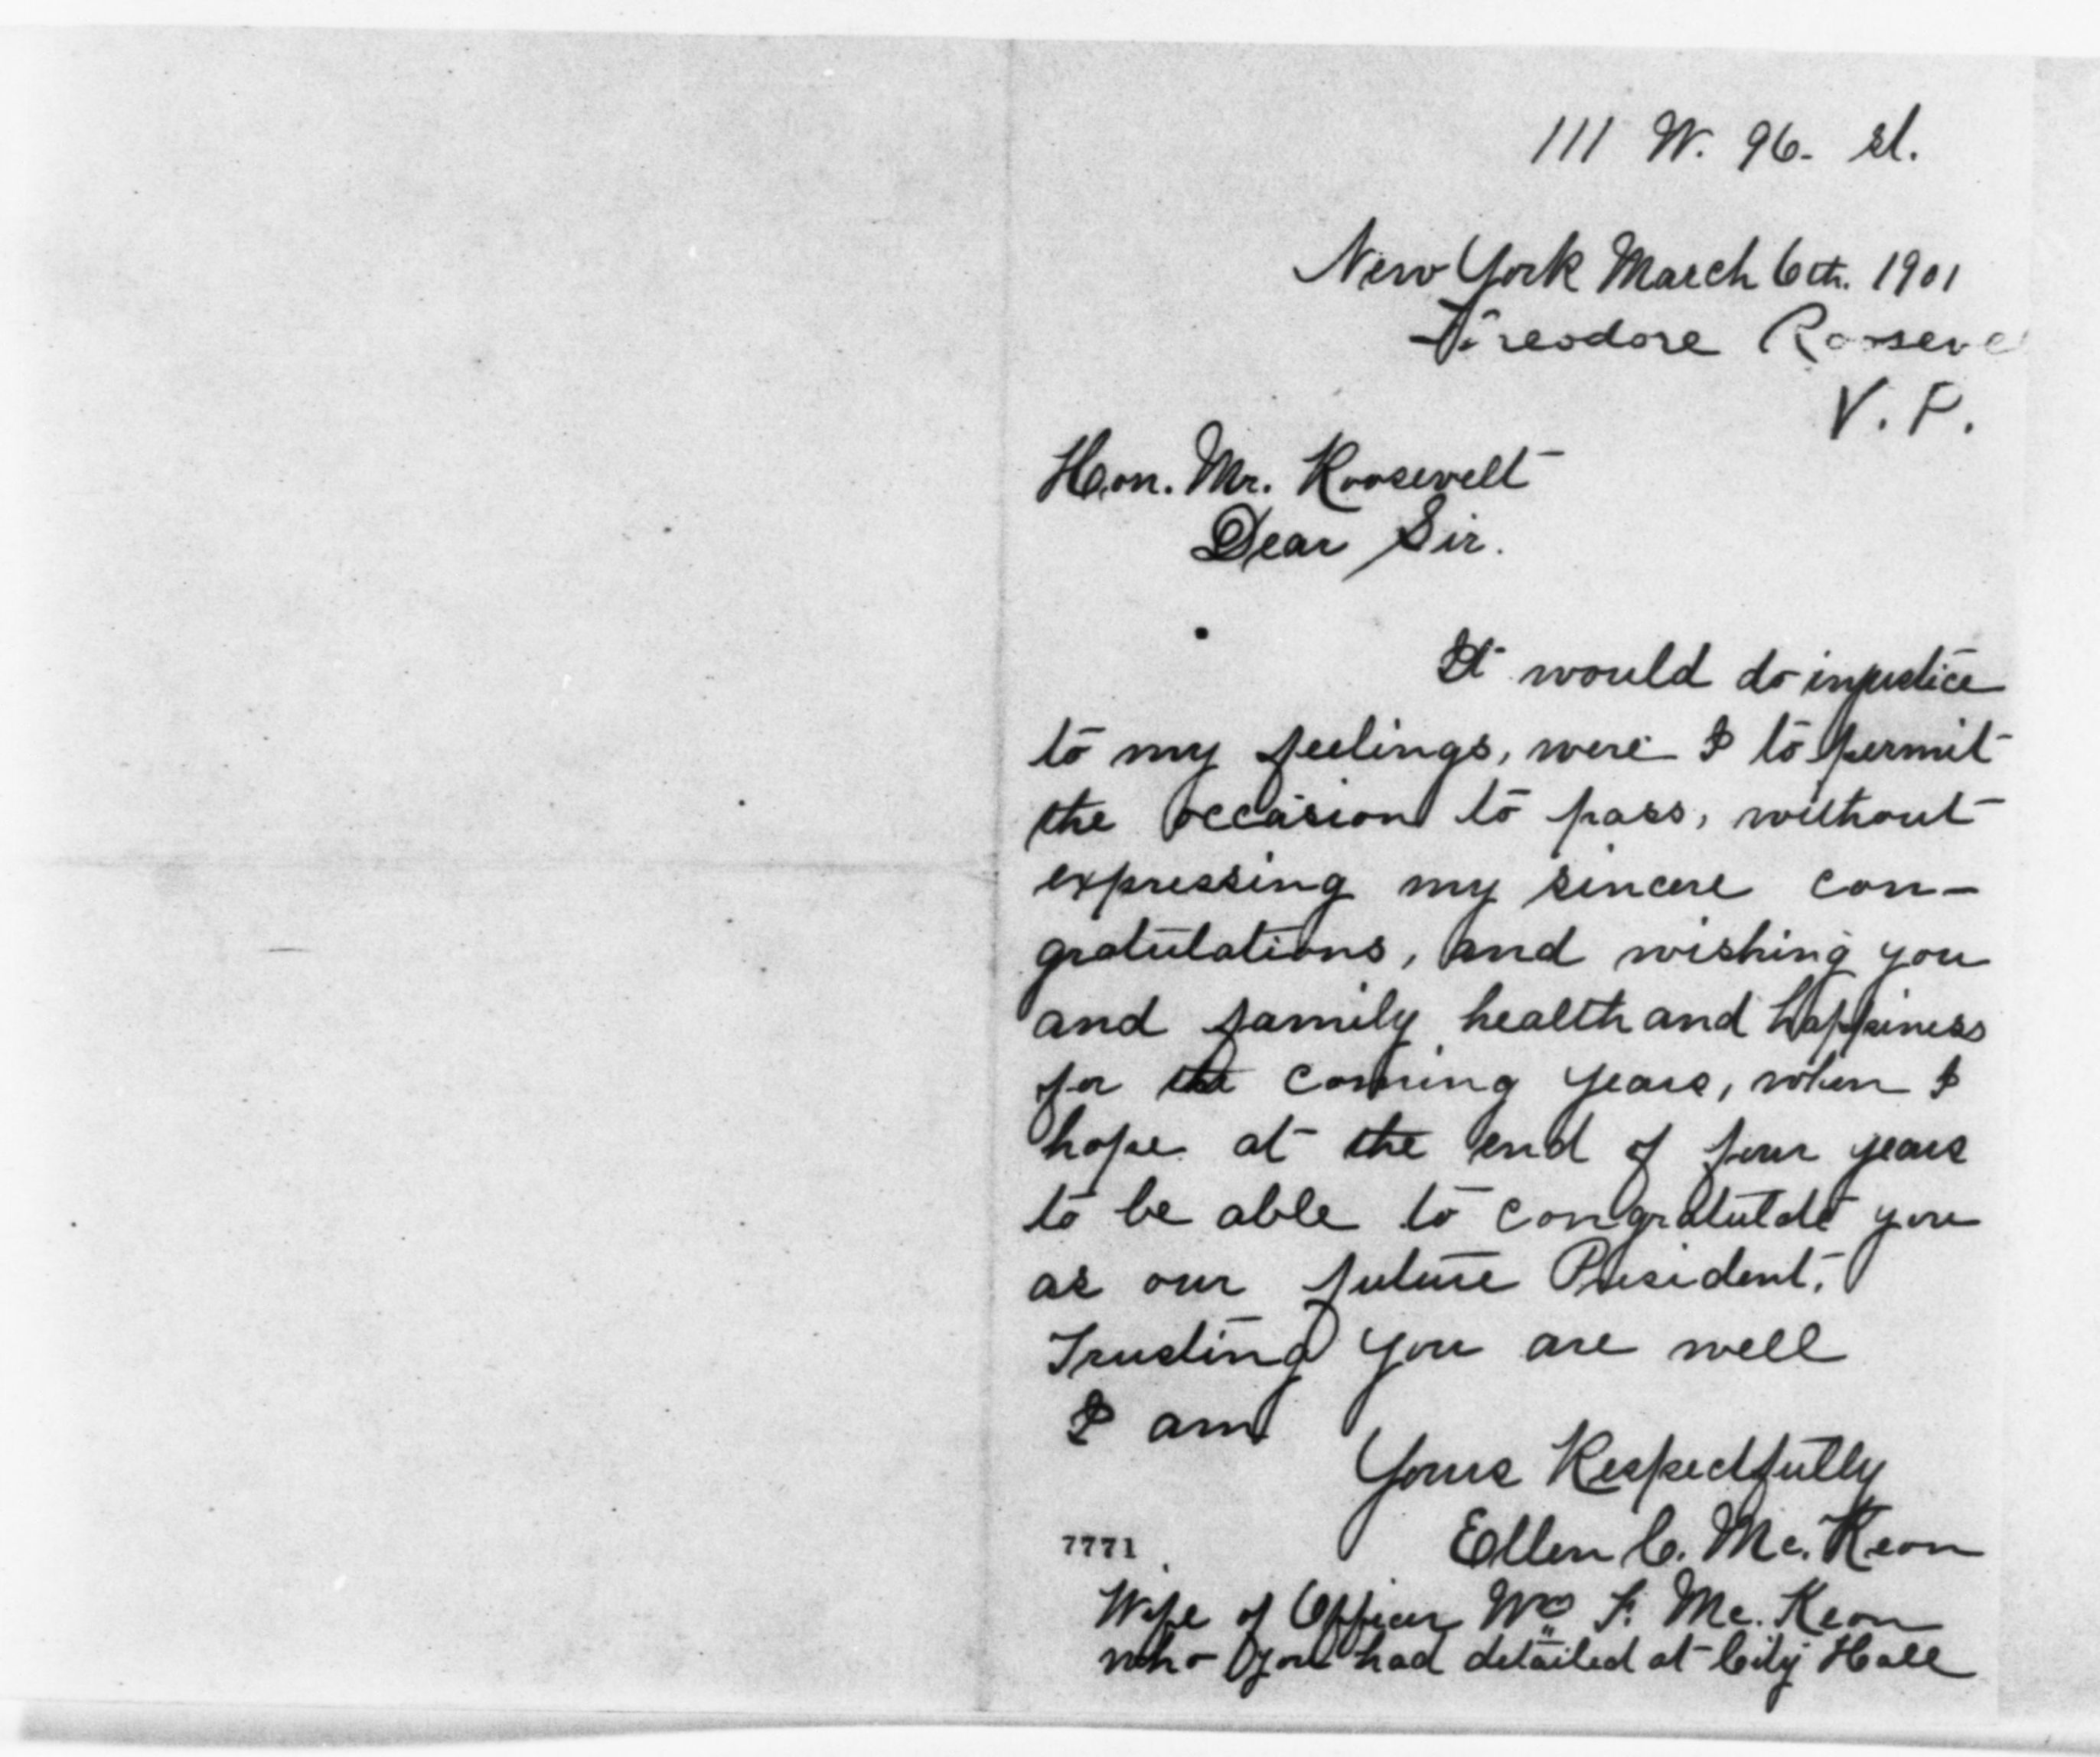 111 W. 96. st.
New York March 6th. 1901
Theodore Rooseve
V. P.
Hon. Mr. Roosevelt
Dear Sir.
It would do injustice
to my feelings, were I to permit
the occasion to pass, without
expressing my sincere con-
gratulations, and wishing you
and family health and happiness
for the coming years, when I
hope at the end of four years
to be able to congratulate you
as our future President.
Trusting you are well
I am
Yours Respectfully
Ellen C. Mc. Keon
7771
Wife of Officer Wm F. Mc. Keon
who you had detailed at City Hall